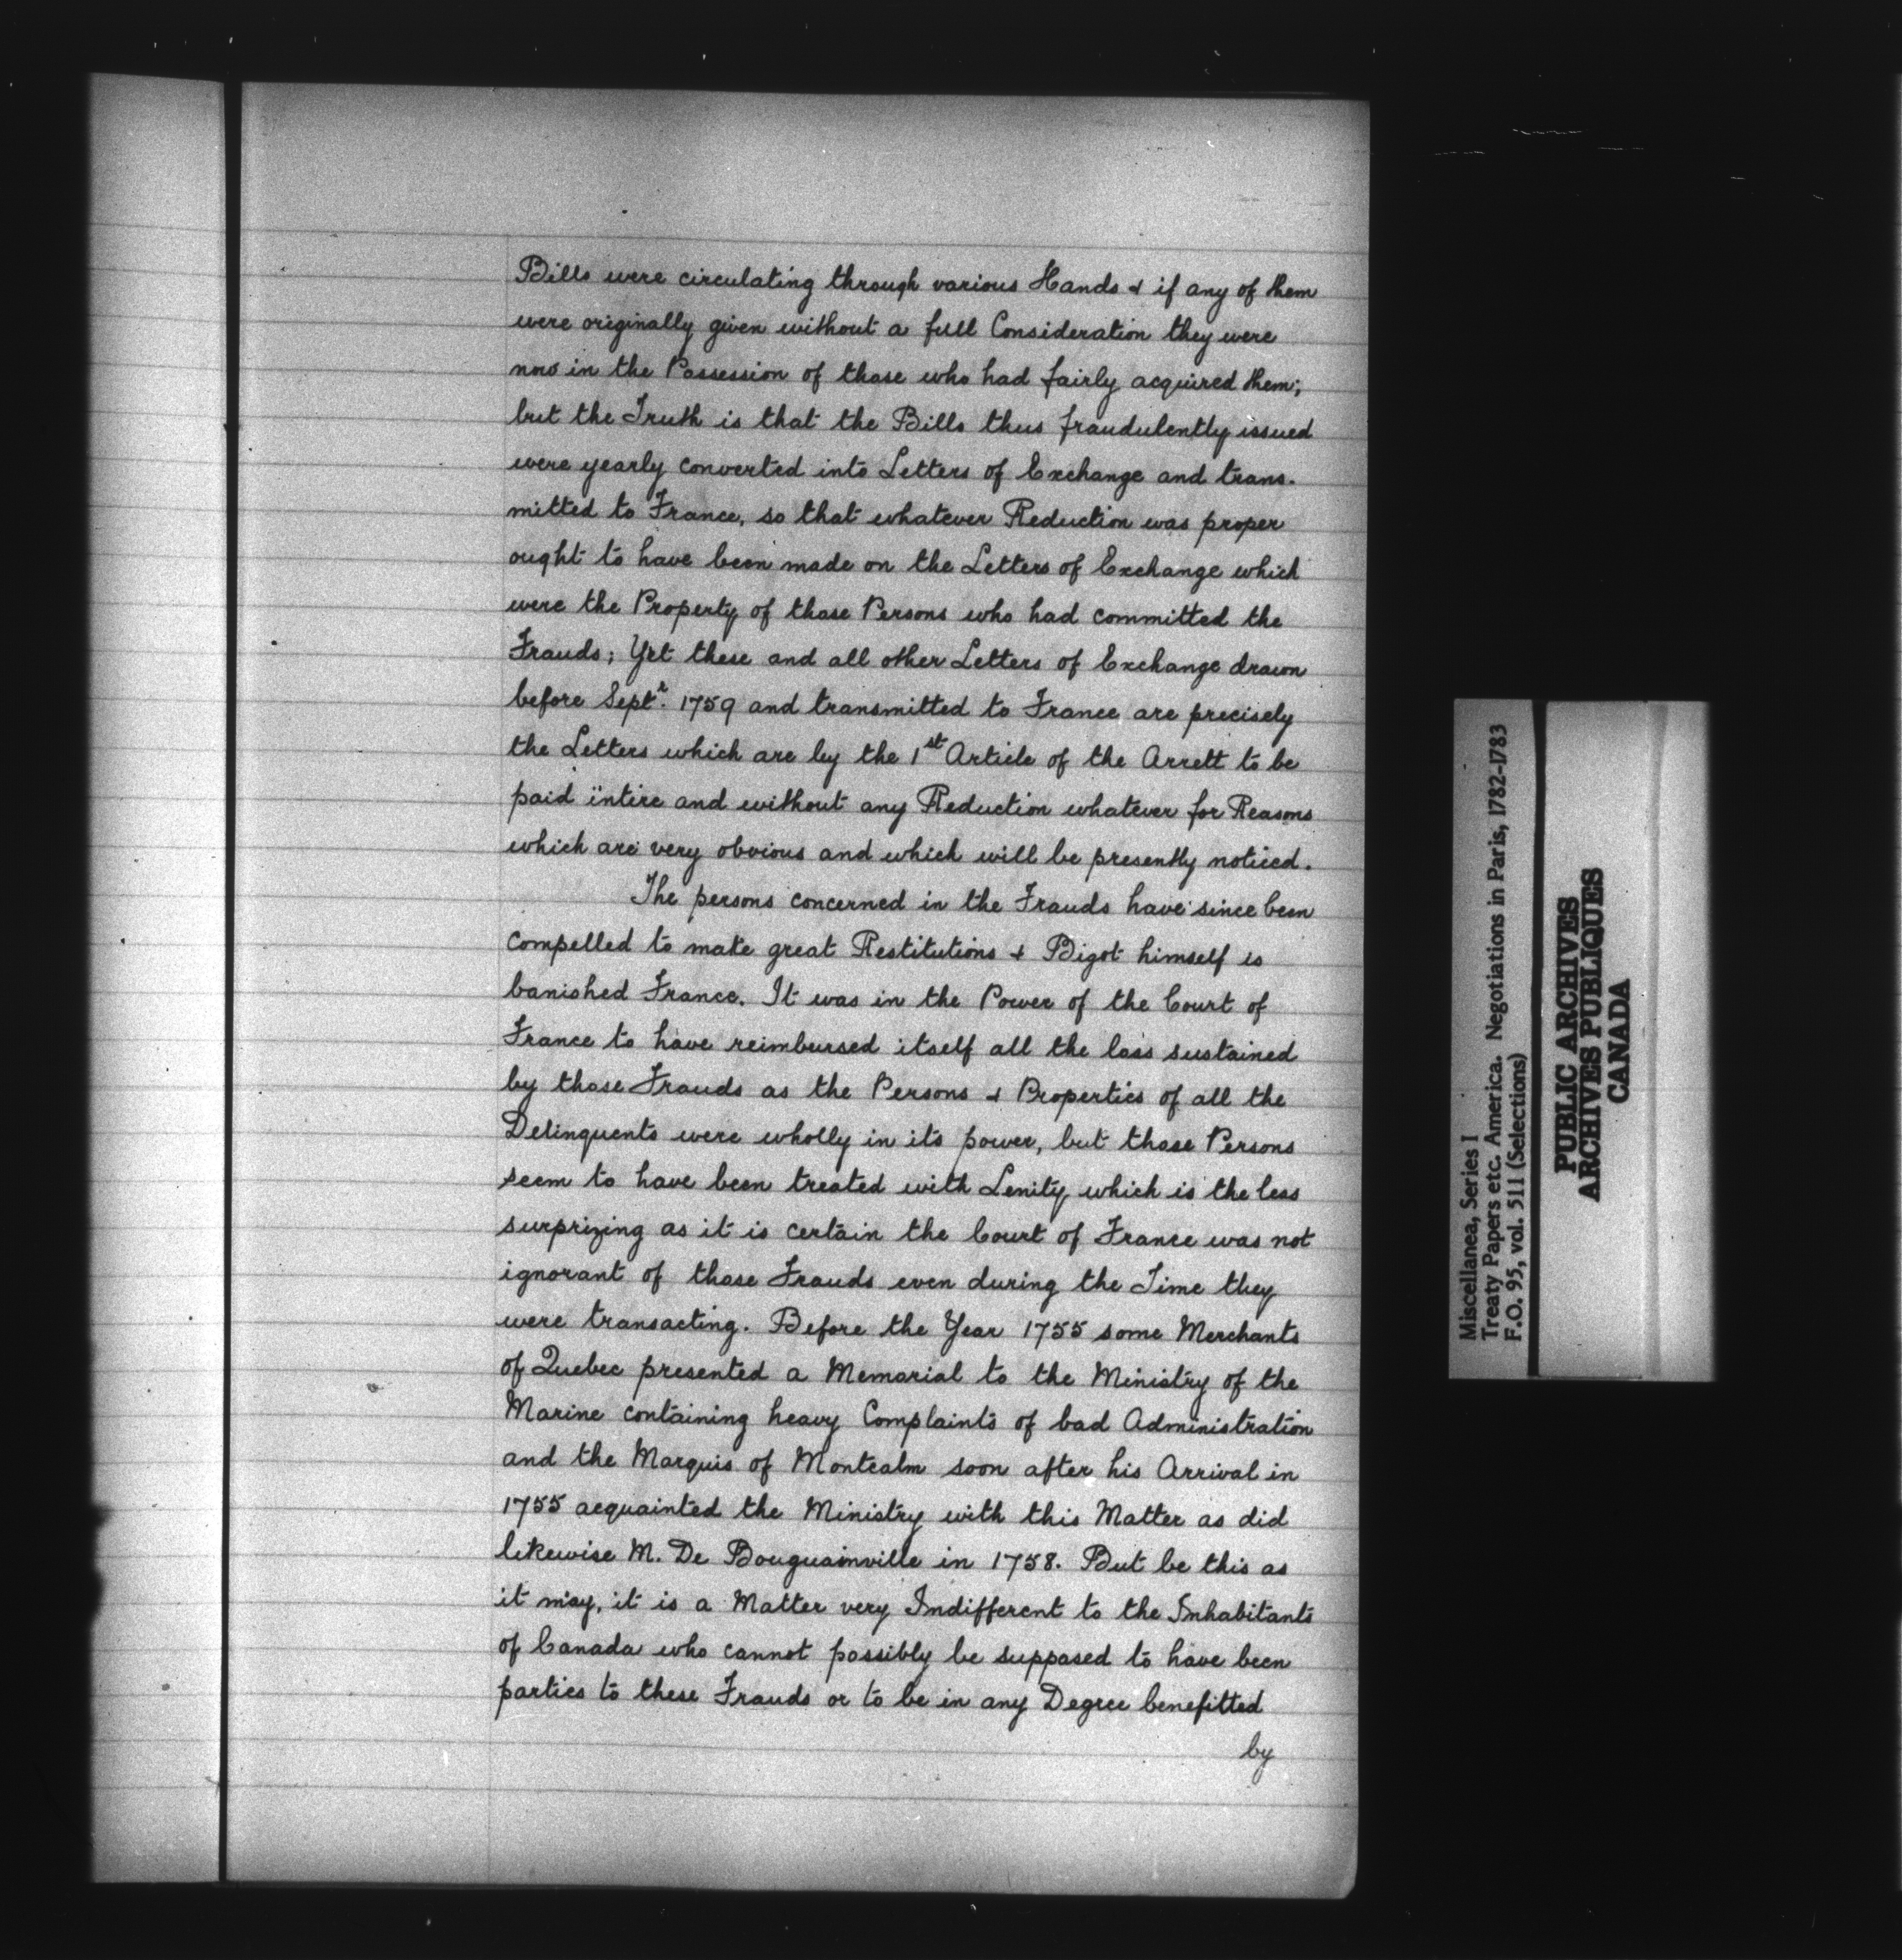 Bills were circulating through various Hands & if any of them
were originally given without a full Consideration they were
now in the Possession of those who had fairly acquired them;
but the Truth is that the Bills thus fraudulently issued
were yearly converted into Letters of Exchange and trans-
mitted to France, so that whatever Reduction was proper
ought to have been made on the Letters of Exchange which
were the Property of those Persons who had committed the
Frauds; Yet these and all other Letters of Exchange drawn
before Septr. 1759 and transmitted to France are precisely
the Letters which are by the 1st Article of the Arrett to be
paid intire and without any Reduction whatever for Reasons
which are very obvious and which will be presently noticed.
The persons concerned in the Frauds have since been
compelled to make great Restitutions & Bigot himself is
banished France. It was in the Power of the Court of
France to have reimbursed itself all the loss sustained
by those Frauds as the Persons & Properties of all the
Delinquents were wholly in its power, but those Persons
seem to have been treated with Lenity which is the less
surprizing as it is certain the Court of France was not
ignorant of those Frauds even during the Time they
were transacting. Before the Year 1755 some Merchants
of Quebec presented a Memorial to the Ministry of the
Marine containing heavy Complaints of bad Administration
and the Marquis of Montcalm soon after his Arrival in
1755 acquainted the Ministry with this Matter as did
likewise M. De Bouguainville in 1758. But be this as
it may, it is a Matter very Indifferent to the Inhabitants
of Canada who cannot possibly be supposed to have been
parties to these Frauds or to be in any Degree benefitted
by
Miscellanea, Series I
Treaty Papers etc. America. Negotiations in Paris, 1782-1783
F.O. 95, vol. 511 (Selections)
PUBLIC ARCHIVES
ARCHIVES PUBLIQUES
CANADA